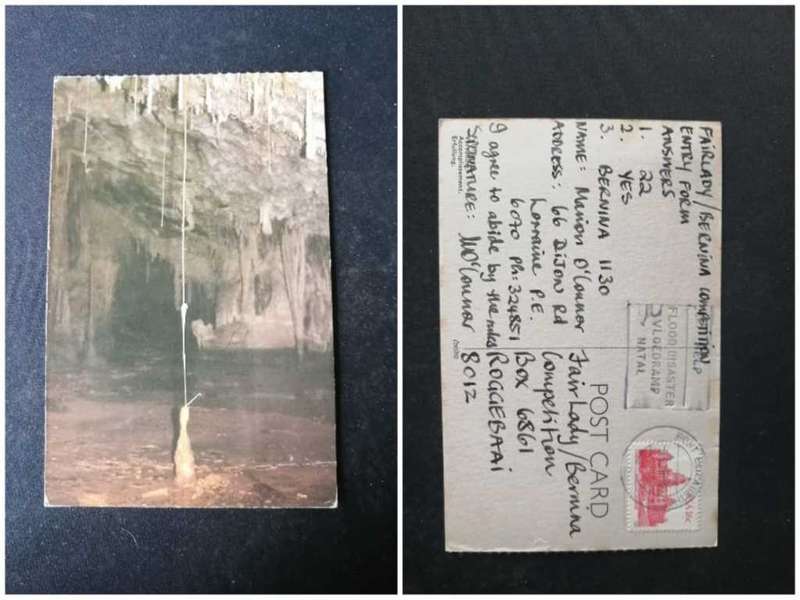 FAIRLADY/BERNINA COMPETITION
ENTRY FORM
ANSWERS
1. 22
2. YES
3. BERNINA 1130
NAME: Marion O'Connor
ADDRESS: 66 DIJON Rd
Lorraine P.E.
6070 Ph: 324851
I agree to abide by the rules
SIGNATURE: MO'Connor
Accomplishment.
Erfüllung.
FLOOD DISASTER
VLOEDRAMP
NATAL
POST CARD
FairLady/Bernina
Competition
Box 6861
ROGGEBAAI
8012